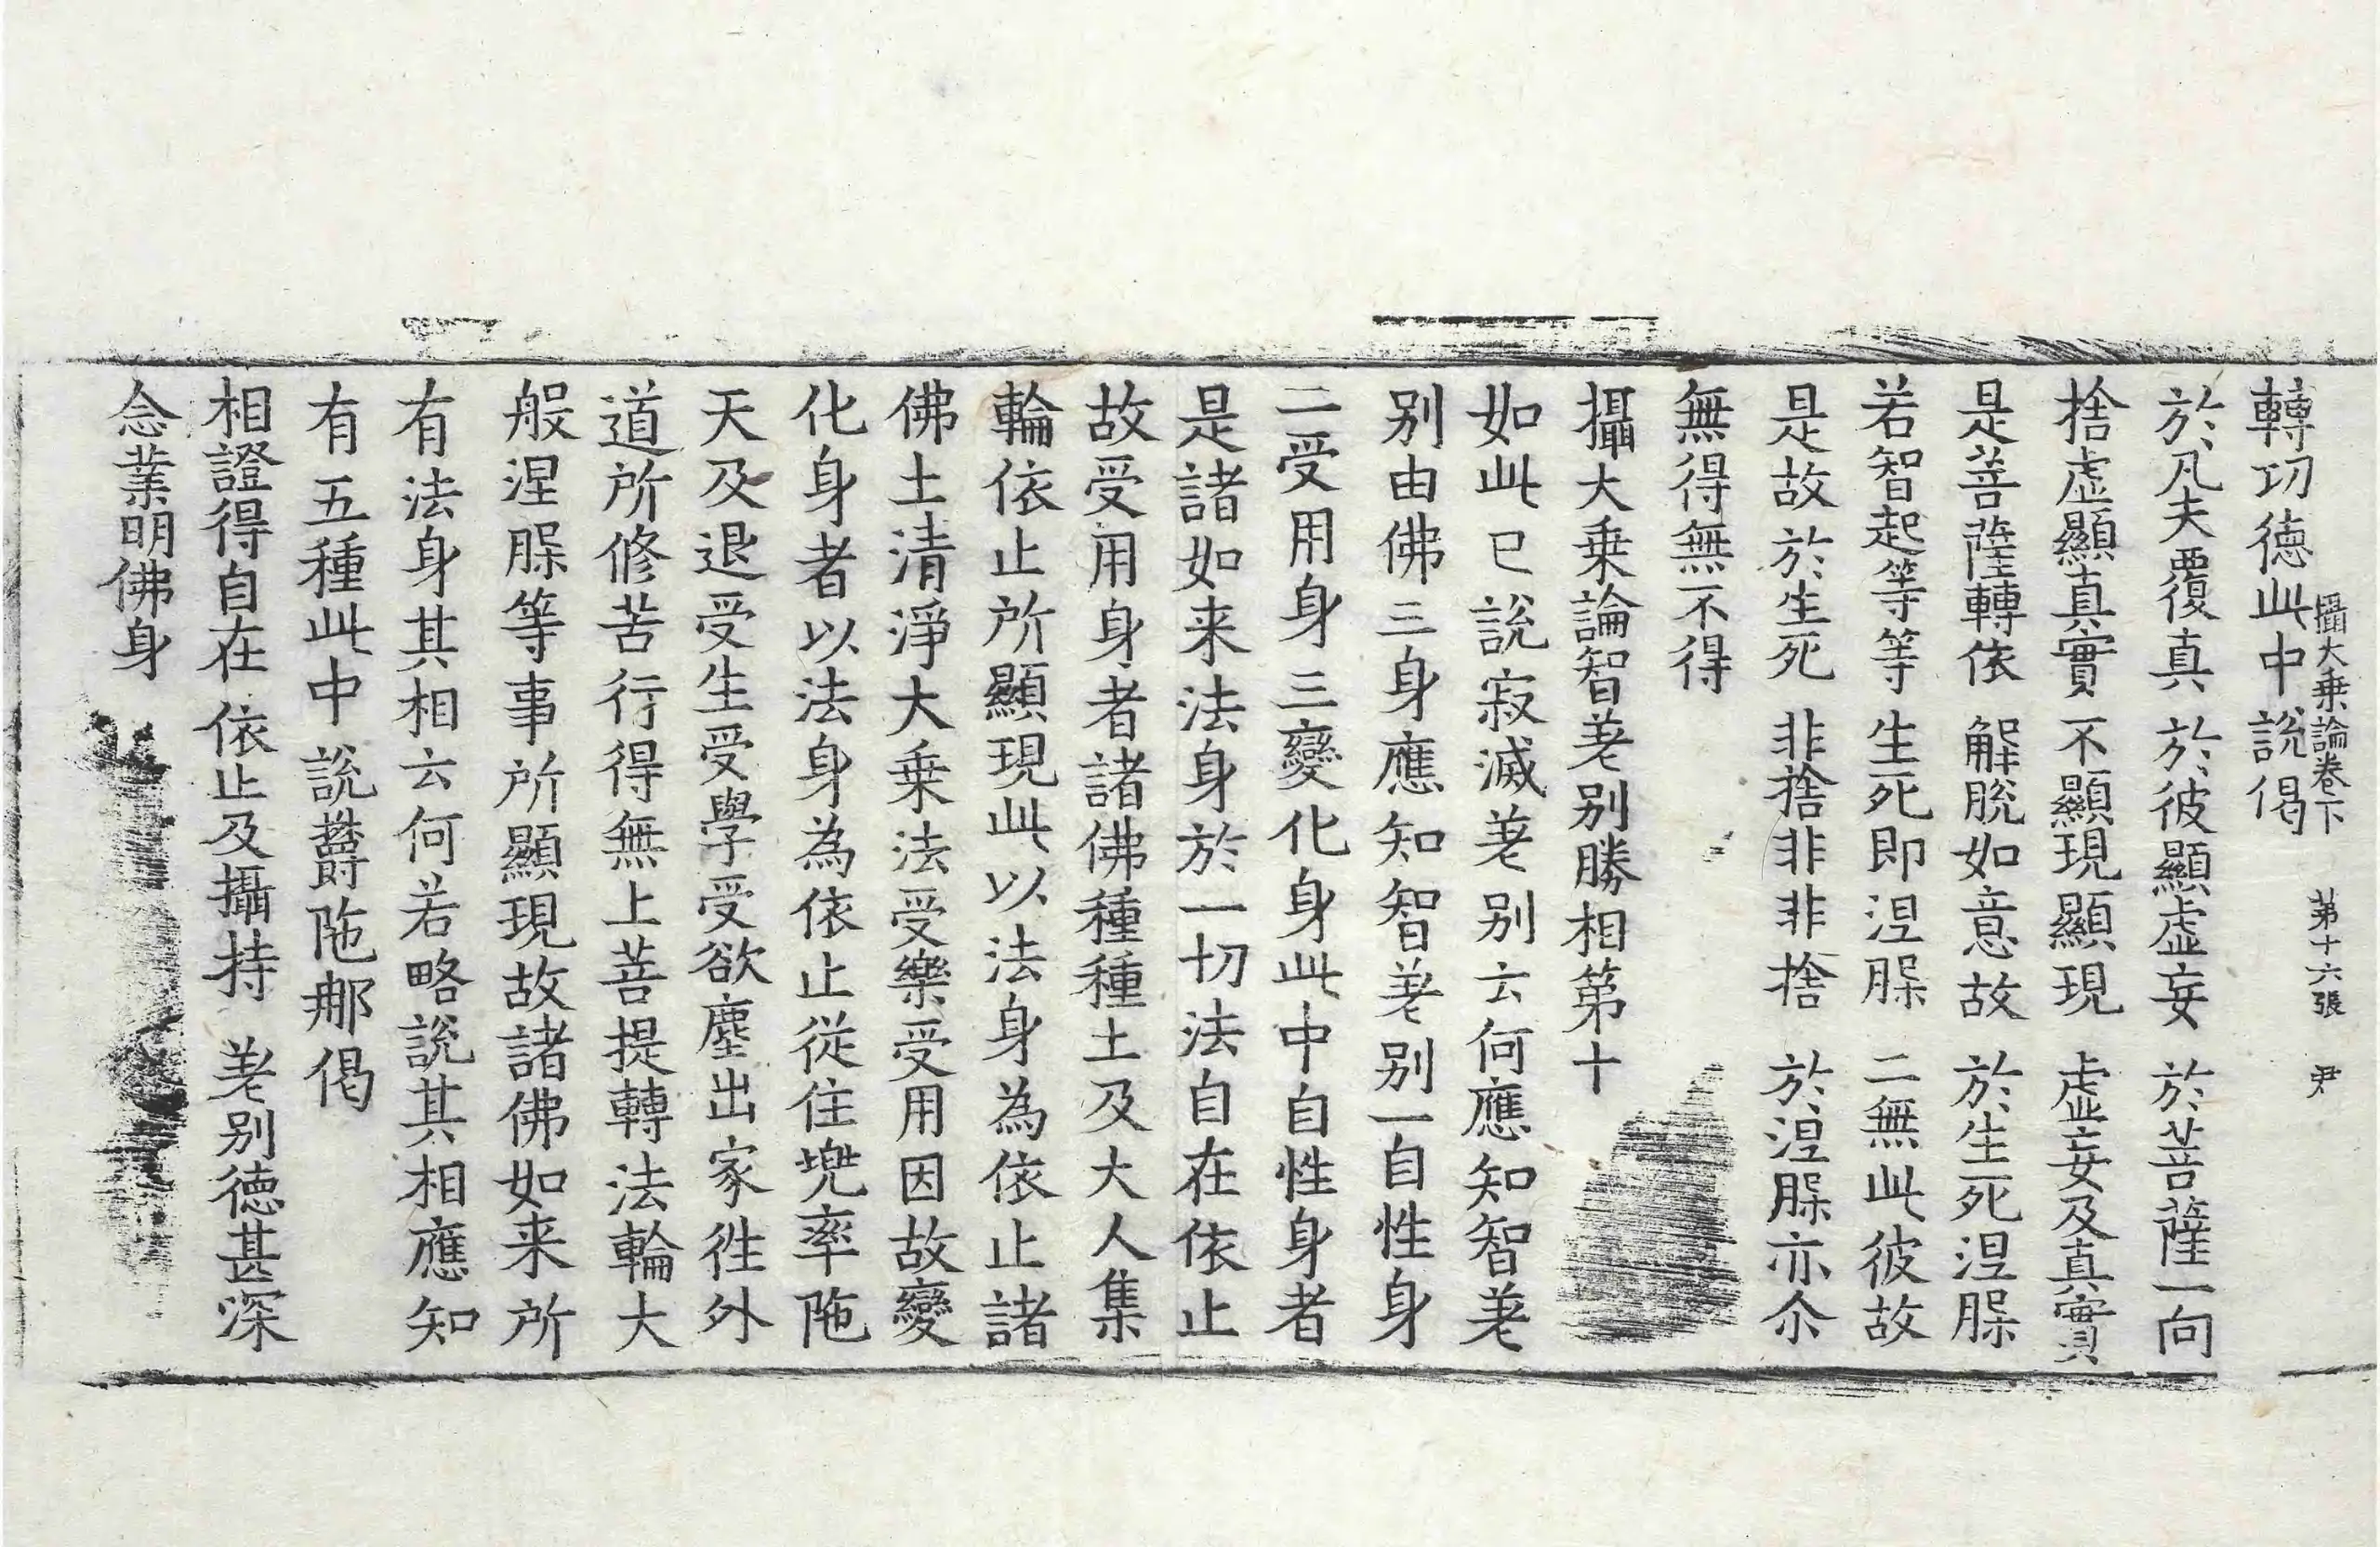 攝大乗論卷下　第十六張　尹
轉功德此中說偈
於凡夫覆真　於彼顯虛妄　於菩薩一向
捨虛顯真實　不顯現顯現　虛妄及真實
是菩薩轉依　解脫如意故　於生死涅槃
若智起等等　生死即涅槃　二無此彼故
是故於生死　非捨非非捨　於涅槃亦尒
無得無不得
攝大乗論智差别勝相第十
如此已說寂滅差别云何應知智差
别由佛三身應知智差别一自性身
二受用身三變化身此中自性身者
是諸如来法身於一切法自在依止
故受用身者諸佛種種土及大人集
輪依止所顯現此以法身為依止諸
佛土清淨大乗法受樂受用因故變
化身者以法身為依止從住兜率陁
天及退受生受學受欲塵出家徃外
道所修苦行得無上菩提轉法輪大
般涅槃等事所顯現故諸佛如来所
有法身其相云何若略說其相應知
有五種此中說欝陁那偈
相證得自在　依止及攝持　差别德甚深
念業明佛身